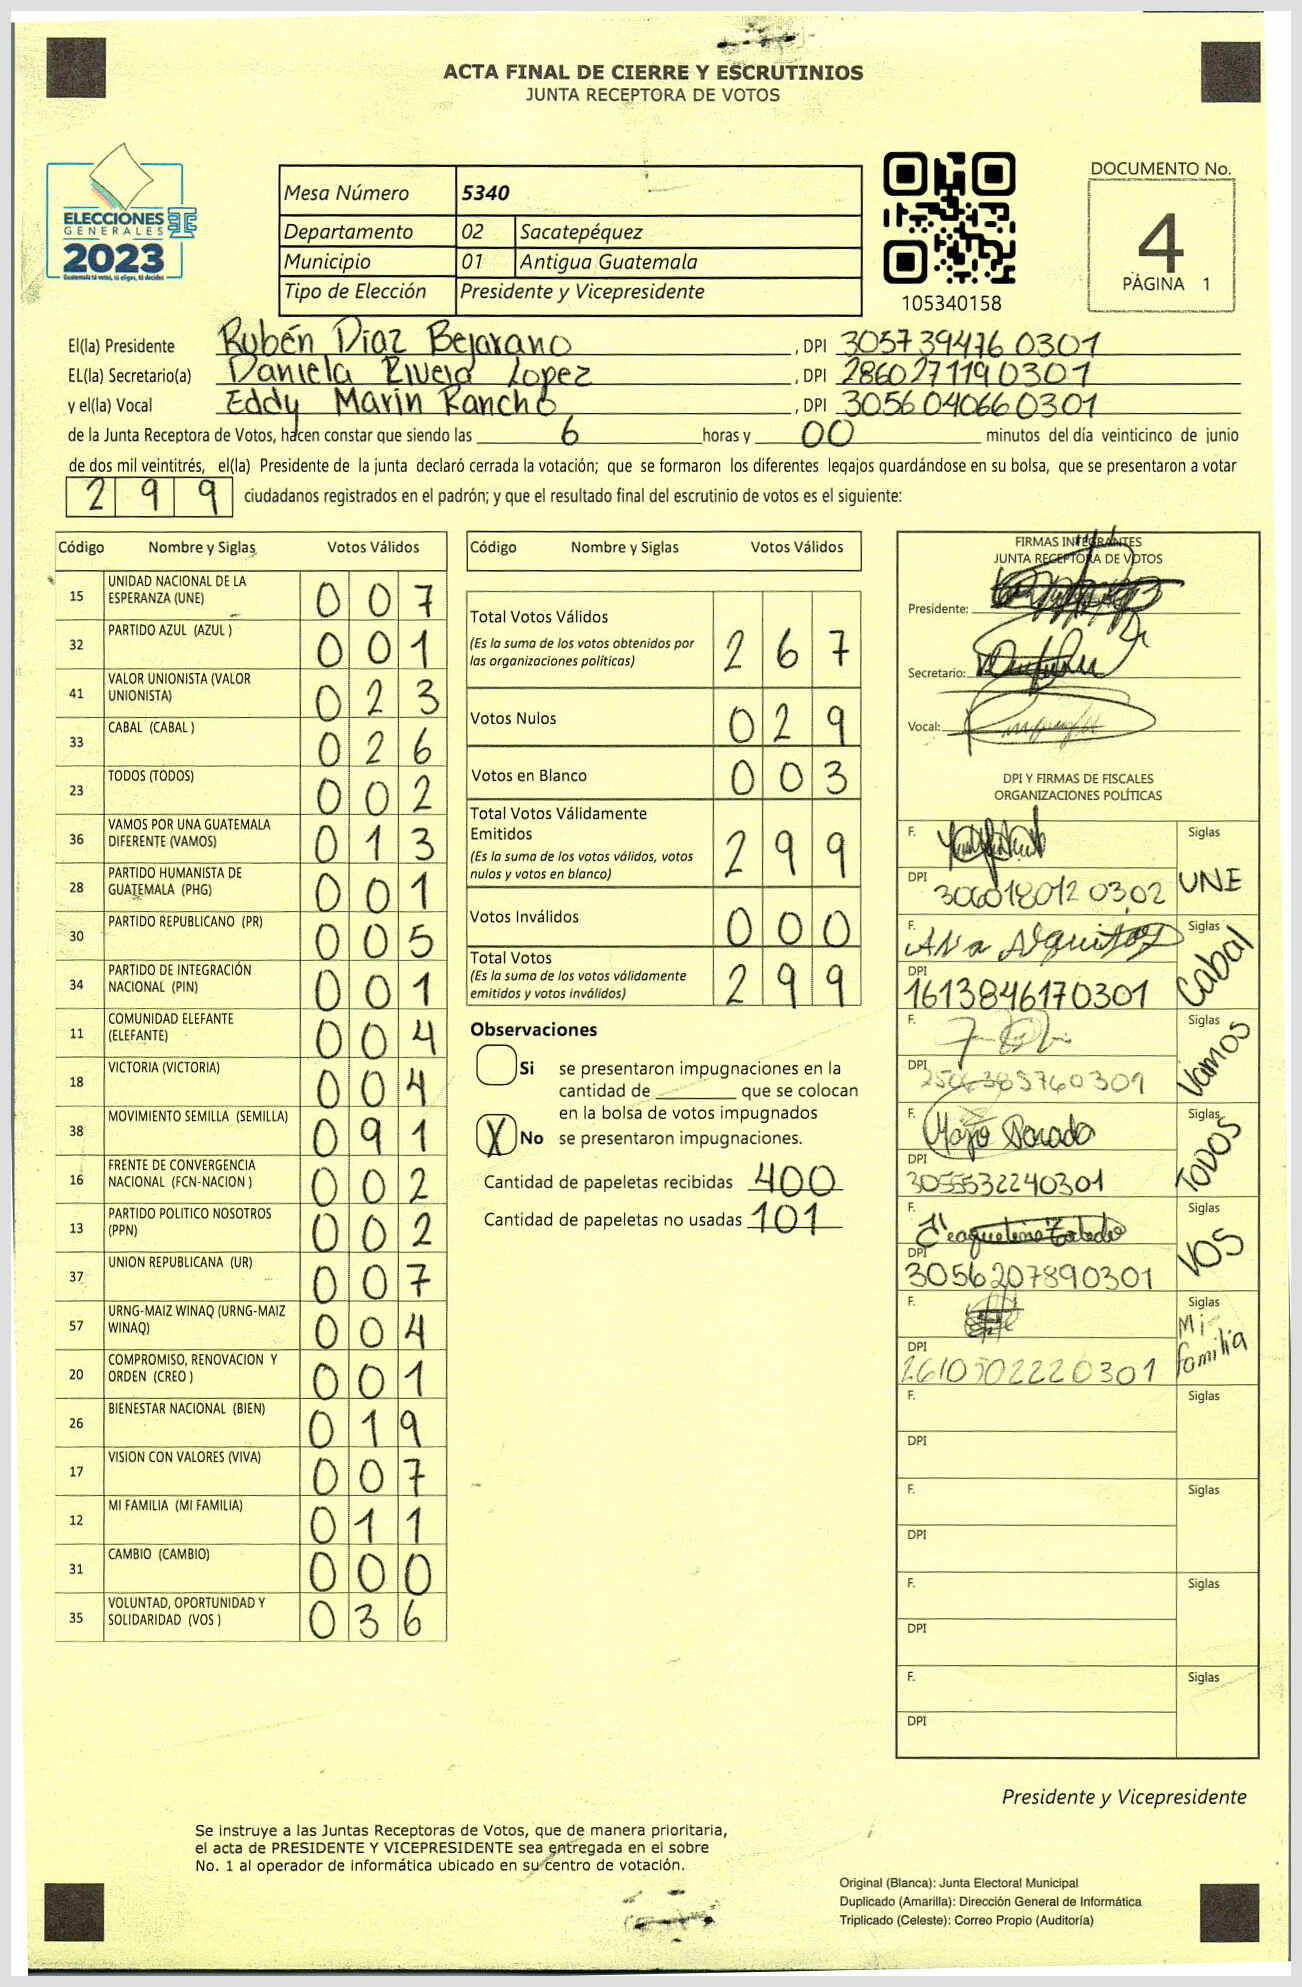 ACTA FINAL DE CIERRE Y ESCRUTINIOS
JUNTA RECEPTORA DE VOTOS
ELECCIONES
GENERALES
2023
Guatemala tú votas, tú eliges, tú decides
Mesa Número 5340
Departamento 02 Sacatepéquez
Municipio 01 Antigua Guatemala
Tipo de Elección Presidente y Vicepresidente
105340158
DOCUMENTO No.
4
PÁGINA 1
El(la) Presidente Rubén Díaz Bejarano , DPI 3057394760301
EL(la) Secretario(a) Daniela Rivera Lopez , DPI 2860271190301
y el(la) Vocal Eddy Marin Rancho , DPI 3056040660301
de la Junta Receptora de Votos, hacen constar que siendo las 6 horas y 00 minutos del día veinticinco de junio
de dos mil veintitrés, el(la) Presidente de la junta declaró cerrada la votación; que se formaron los diferentes legajos guardándose en su bolsa, que se presentaron a votar
299 ciudadanos registrados en el padrón; y que el resultado final del escrutinio de votos es el siguiente:
Código Nombre y Siglas Votos Válidos
15 UNIDAD NACIONAL DE LA ESPERANZA (UNE) 007
32 PARTIDO AZUL (AZUL ) 001
41 VALOR UNIONISTA (VALOR UNIONISTA) 023
33 CABAL (CABAL ) 026
23 TODOS (TODOS) 002
36 VAMOS POR UNA GUATEMALA DIFERENTE (VAMOS) 013
28 PARTIDO HUMANISTA DE GUATEMALA (PHG) 001
30 PARTIDO REPUBLICANO (PR) 005
34 PARTIDO DE INTEGRACIÓN NACIONAL (PIN) 001
11 COMUNIDAD ELEFANTE (ELEFANTE) 004
18 VICTORIA (VICTORIA) 004
38 MOVIMIENTO SEMILLA (SEMILLA) 091
16 FRENTE DE CONVERGENCIA NACIONAL (FCN-NACION ) 002
13 PARTIDO POLITICO NOSOTROS (PPN) 002
37 UNION REPUBLICANA (UR) 007
57 URNG-MAIZ WINAQ (URNG-MAIZ WINAQ) 004
20 COMPROMISO, RENOVACION Y ORDEN (CREO ) 001
26 BIENESTAR NACIONAL (BIEN) 019
17 VISION CON VALORES (VIVA) 007
12 MI FAMILIA (MI FAMILIA) 011
31 CAMBIO (CAMBIO) 000
35 VOLUNTAD, OPORTUNIDAD Y SOLIDARIDAD (VOS ) 036
Código Nombre y Siglas Votos Válidos
Total Votos Válidos 267
(Es la suma de los votos obtenidos por
las organizaciones políticas)
Votos Nulos 029
Votos en Blanco 003
Total Votos Válidamente
Emitidos 299
(Es la suma de los votos válidos, votos
nulos y votos en blanco)
Votos Inválidos 000
Total Votos 299
(Es la suma de los votos válidamente
emitidos y votos inválidos)
Observaciones
Si se presentaron impugnaciones en la
cantidad de ________ que se colocan
en la bolsa de votos impugnados
X No se presentaron impugnaciones.
Cantidad de papeletas recibidas 400
Cantidad de papeletas no usadas 101
FIRMAS INTEGRANTES
JUNTA RECEPTORA DE VOTOS
Presidente:
Secretario:
Vocal:
DPI Y FIRMAS DE FISCALES
ORGANIZACIONES POLÍTICAS
F. Siglas
DPI 3060180120302 UNE
F. Siglas
DPI 1613846170301 Cabal
F. Siglas
DPI Vamos
F. Majo Dorado Siglas
DPI 3055532240301 TODOS
F. Siglas
DPI 3056207890301 VOS
F. Siglas
DPI 2610502220301 Mi familia
F. Siglas
DPI
F. Siglas
DPI
F. Siglas
DPI
F. Siglas
DPI
Presidente y Vicepresidente
Se instruye a las Juntas Receptoras de Votos, que de manera prioritaria,
el acta de PRESIDENTE Y VICEPRESIDENTE sea entregada en el sobre
No. 1 al operador de informática ubicado en su centro de votación.
Original (Blanca): Junta Electoral Municipal
Duplicado (Amarilla): Dirección General de Informática
Triplicado (Celeste): Correo Propio (Auditoría)